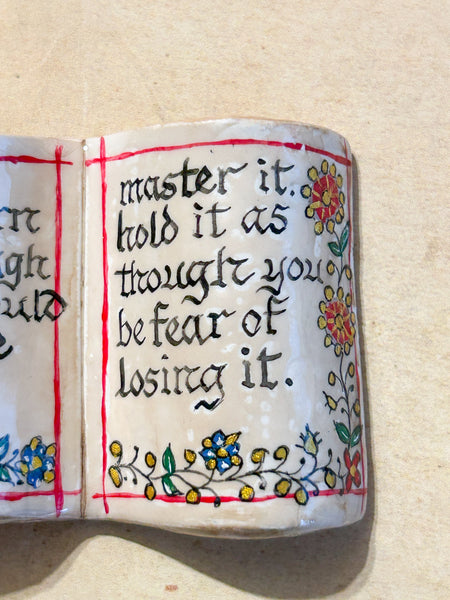 master it.
hold it as
though you
be fear of
losing it.